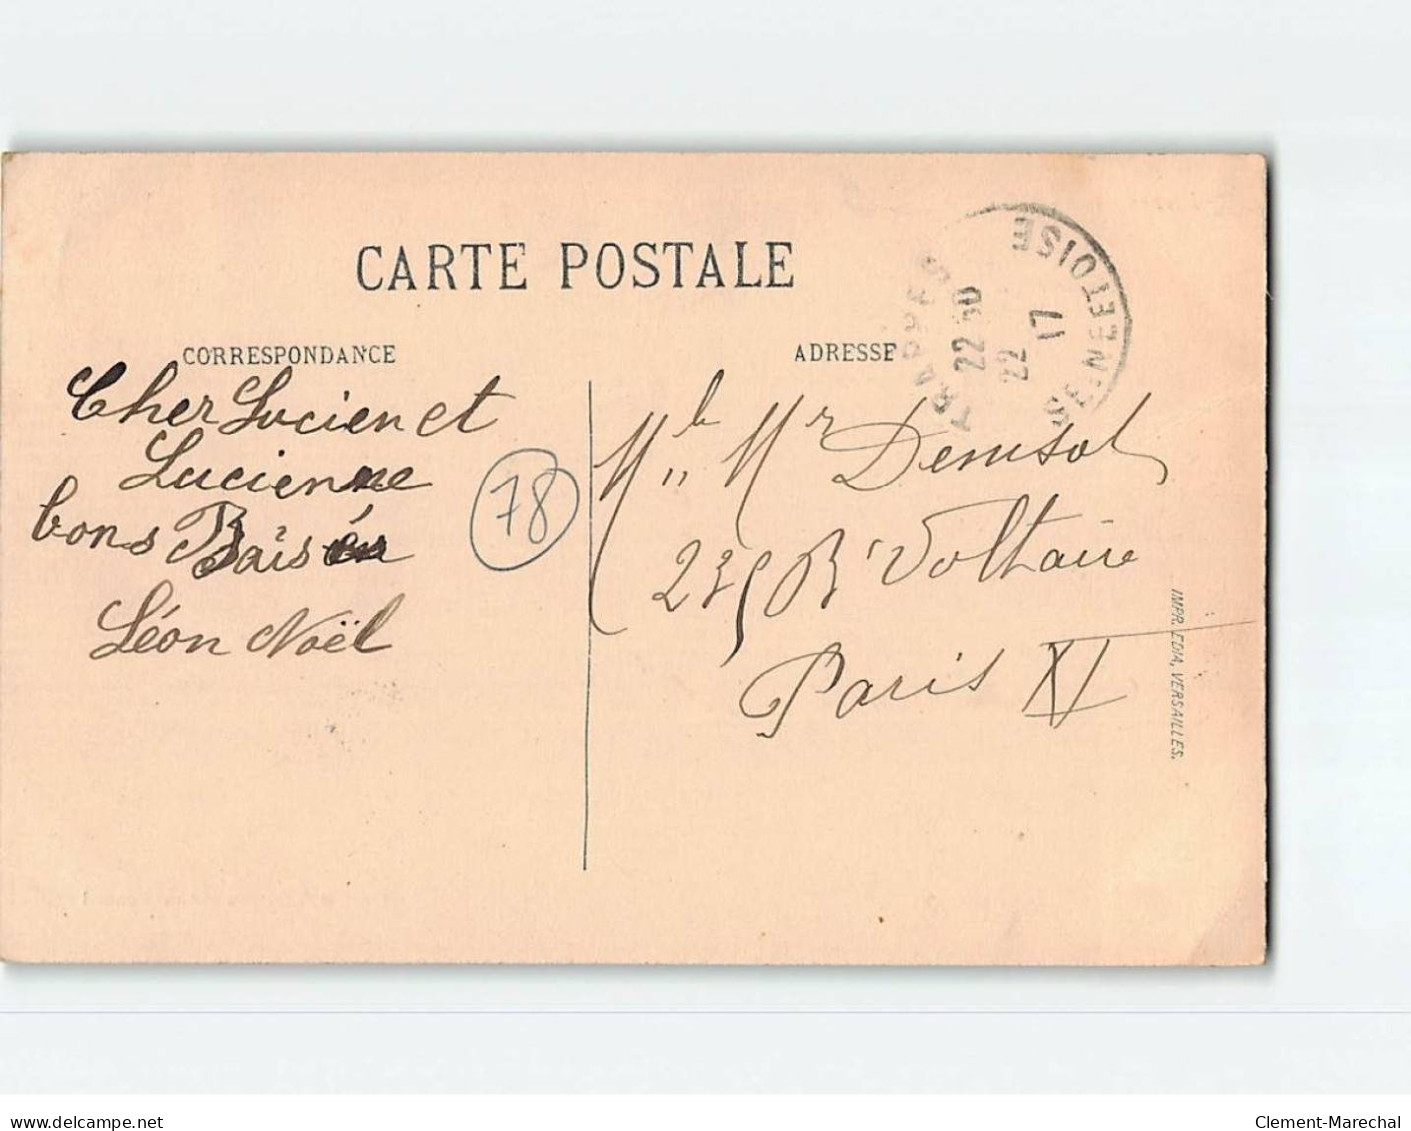 CARTE POSTALE
CORRESPONDANCE
Cher Lucien et
Lucienne
bons Bais
Léon Noël
78
ADRESSE
TRAPPES
22 30
22
17
SEINE ET OISE
Mr
235 Bd Voltaire
Paris XI
IMPR. EDIA, VERSAILLES.
www.delcampe.net
Clement-Marechal